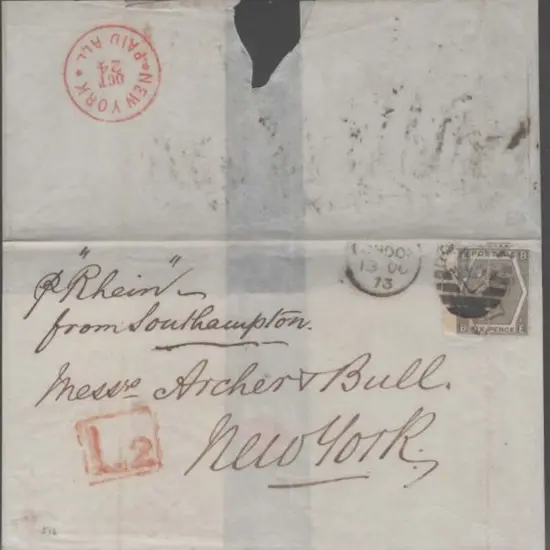 NEW YORK
OCT
24
PAID ALL
LONDON
13 OC
73
POSTAGE
SIX PENCE
B
E
℘ "Rhein"
from Southampton.
Messrs Archer & Bull.
New York.
L2